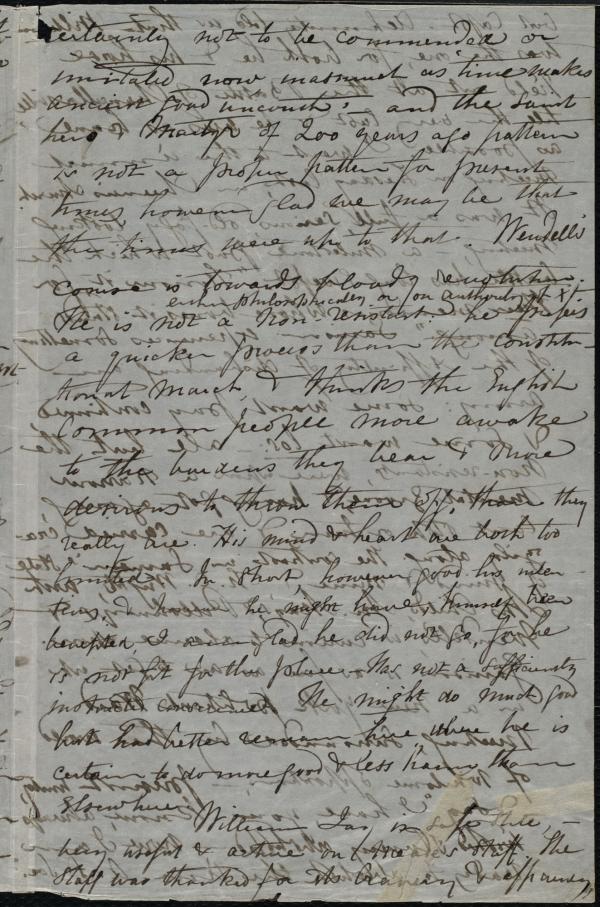 certainly not to be commended or
imitated now inasmuch as "time makes
ancient good uncouth", and the saint
hero & martyr of 200 years ago pattern
is not a proper pattern for present
times however glad we may be that
the times were up to that. Wendell's
course is towards bloody revolution.
either philosophically or on authority of Xt.
He is not a Non-resistant. he prefers
a quicker process than the constitu-
tional march, & thinks the English
common people more awake
to the burdens they bear & more
desirous to throw them off, than they
really are. His mind & heart are both too
limited. In short, however good his inten-
tions, & he might have himself been
benefited, I am glad he did not go, for he
is not fit for the place. Has not a sufficiently
instructed conscience. He might do much good
but had better remain here, where he is
certain to do more good & less harm than
elsewhere.
William Jay is still here, –
very useful & active on Meade's Staff. The
Staff was thanked for its bravery & efficiency